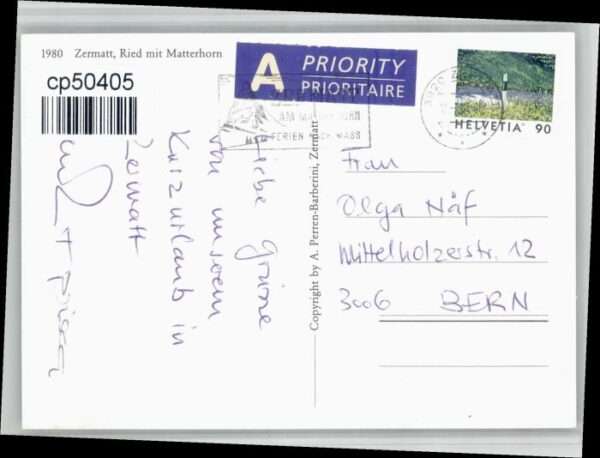 1980 Zermatt, Ried mit Matterhorn
cp50405
A PRIORITY
PRIORITAIRE
HELVETIA 90
Liebe Grüsse
von unserem
Kurzurlaub in
Zermatt
Copyright by A. Perren-Barberini, Zermatt
Frau
Olga Näf
Mittelholzerstr. 12
3006 BERN